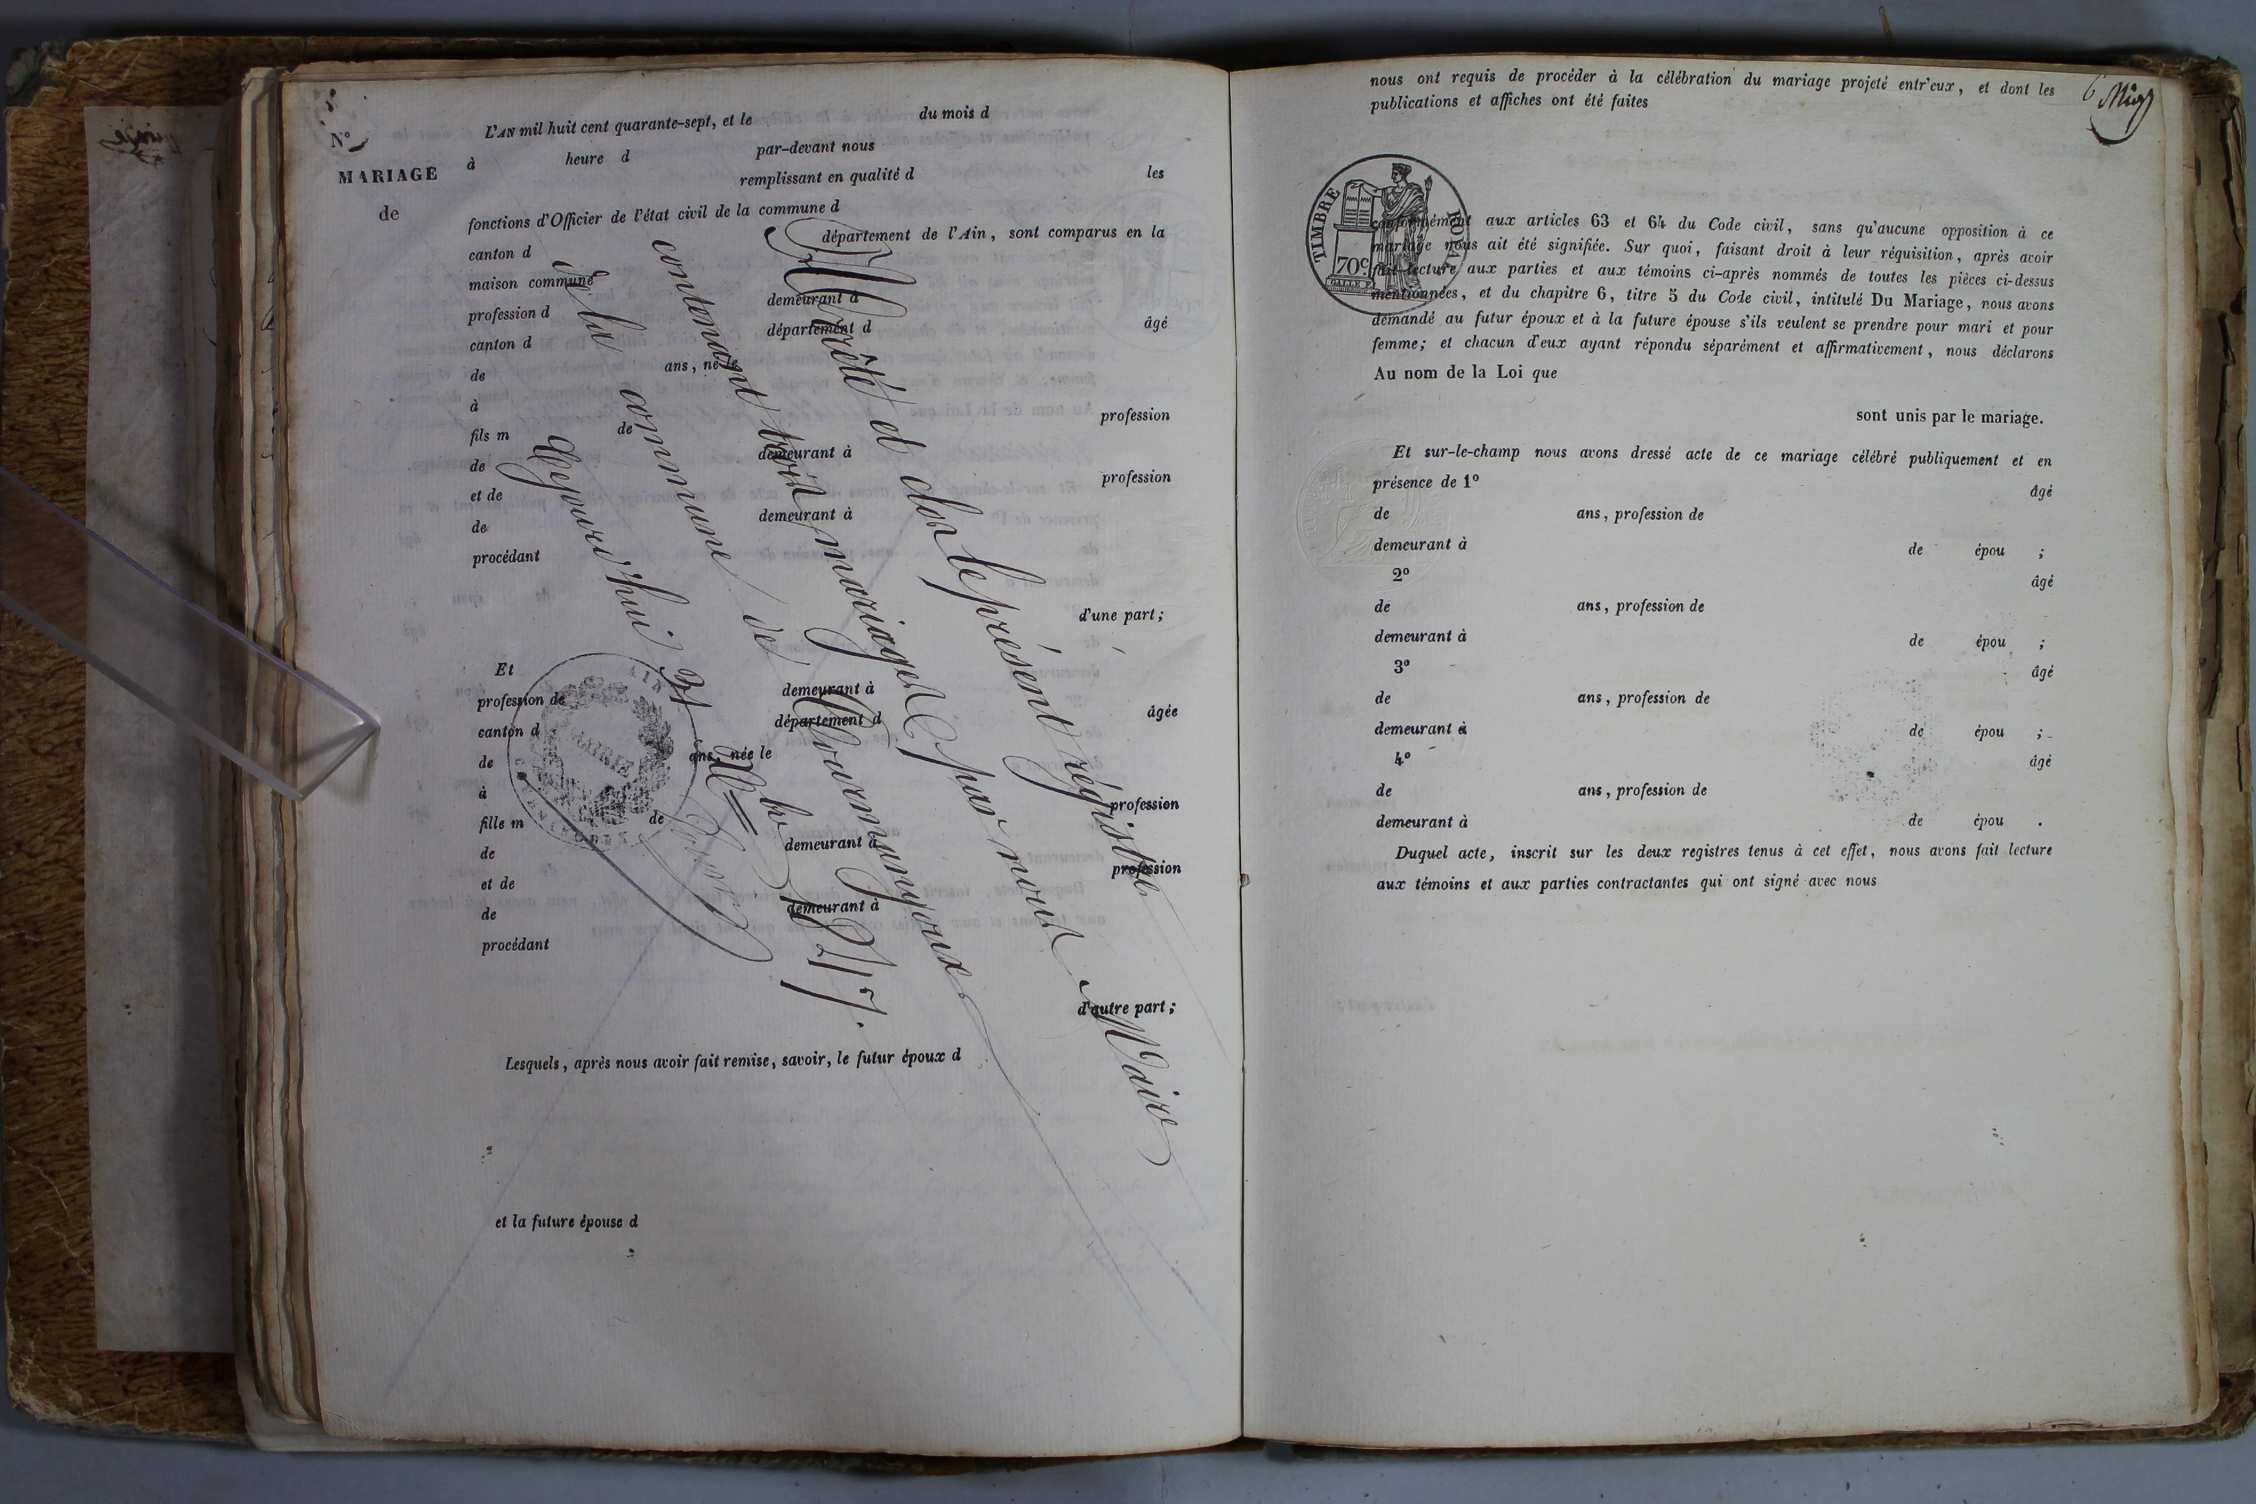 N°
MARIAGE
de
L'AN mil huit cent quarante-sept, et le du mois d
à heure d par-devant nous
remplissant en qualité d les
fonctions d'Officier de l'état civil de la commune d
canton d département de l'Ain, sont comparus en la
maison commune
profession d demeurant à
canton d département d âgé
de ans, né le
à
fils m de profession
de demeurant à
et de profession
de demeurant à
procédant
d'une part;
Et
profession de demeurant à
canton d département d âgée
de ans, née le
à
fille m de profession
de demeurant à
et de profession
de demeurant à
procédant
d'autre part;
Lesquels, après nous avoir fait remise, savoir, le futur époux d
et la future épouse d
Arrêté et clos le présent régistre
contenant trois mariages par nous Maire
de la commune de
Cejourd'hui 31 Xbre 1847.
AIN
MAIRIE
6
nous ont requis de procéder à la célébration du mariage projeté entr'eux, et dont les
publications et affiches ont été faites
TIMBRE ROYAL
70c
conformément aux articles 63 et 64 du Code civil, sans qu'aucune opposition à ce
mariage nous ait été signifiée. Sur quoi, faisant droit à leur réquisition, après avoir
fait lecture aux parties et aux témoins ci-après nommés de toutes les pièces ci-dessus
mentionnées, et du chapitre 6, titre 5 du Code civil, intitulé Du Mariage, nous avons
demandé au futur époux et à la future épouse s'ils veulent se prendre pour mari et pour
femme; et chacun d'eux ayant répondu séparément et affirmativement, nous déclarons
Au nom de la Loi que
sont unis par le mariage.
Et sur-le-champ nous avons dressé acte de ce mariage célébré publiquement et en
présence de 1° âgé
de ans, profession de
demeurant à de épou ;
2° âgé
de ans, profession de
demeurant à de épou ;
3° âgé
de ans, profession de
demeurant à de épou ;
4° âgé
de ans, profession de
demeurant à de épou .
Duquel acte, inscrit sur les deux registres tenus à cet effet, nous avons fait lecture
aux témoins et aux parties contractantes qui ont signé avec nous